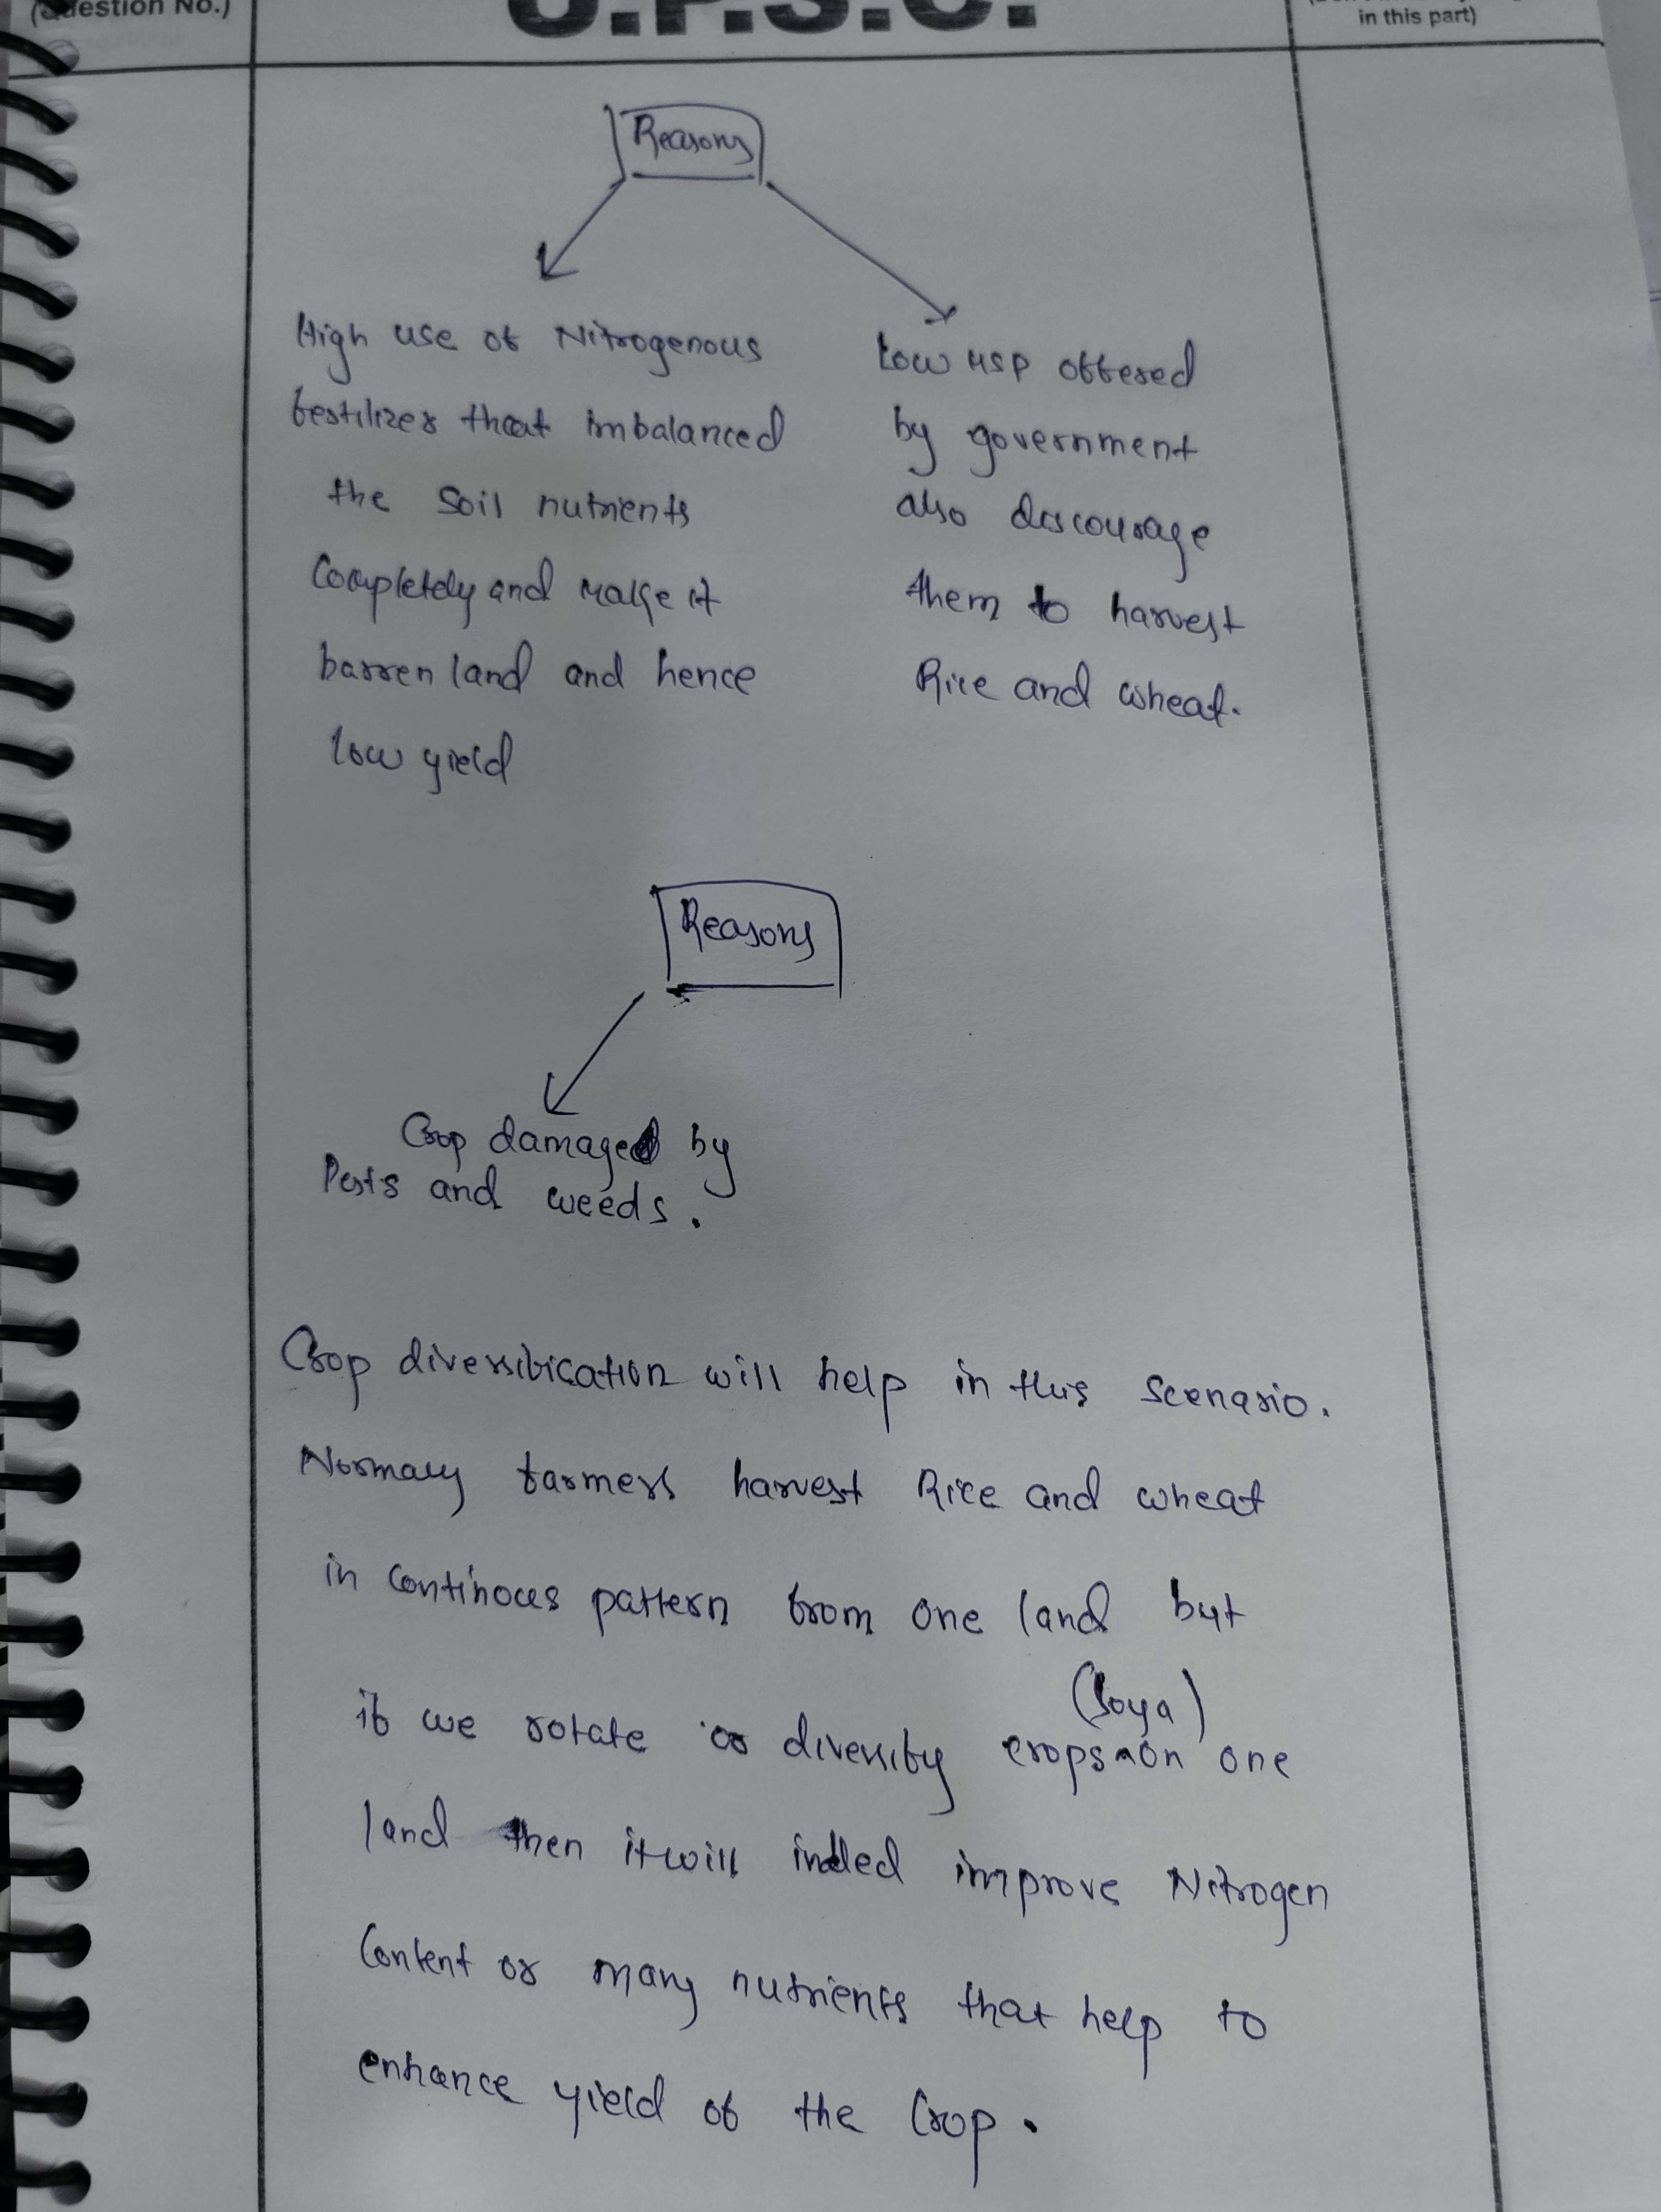 (Question No.)
U.P.S.C.
in this part)
Reasons
High use of Nitrogenous
fertilizer that imbalanced
the soil nutrients
Completely and make it
barren land and hence
low yield
Low MSP offered
by government
also discourage
them to harvest
Rice and wheat.
Reasons
Crop damaged by
Pests and weeds.
Crop diversification will help in this scenario.
Normaly farmers harvest Rice and wheat
in continous pattern from one land but
(Soya)
if we rotate or diversify crops on one
land then it will indeed improve Nitrogen
Content or many nutrients that help to
enhance yield of the Crop.